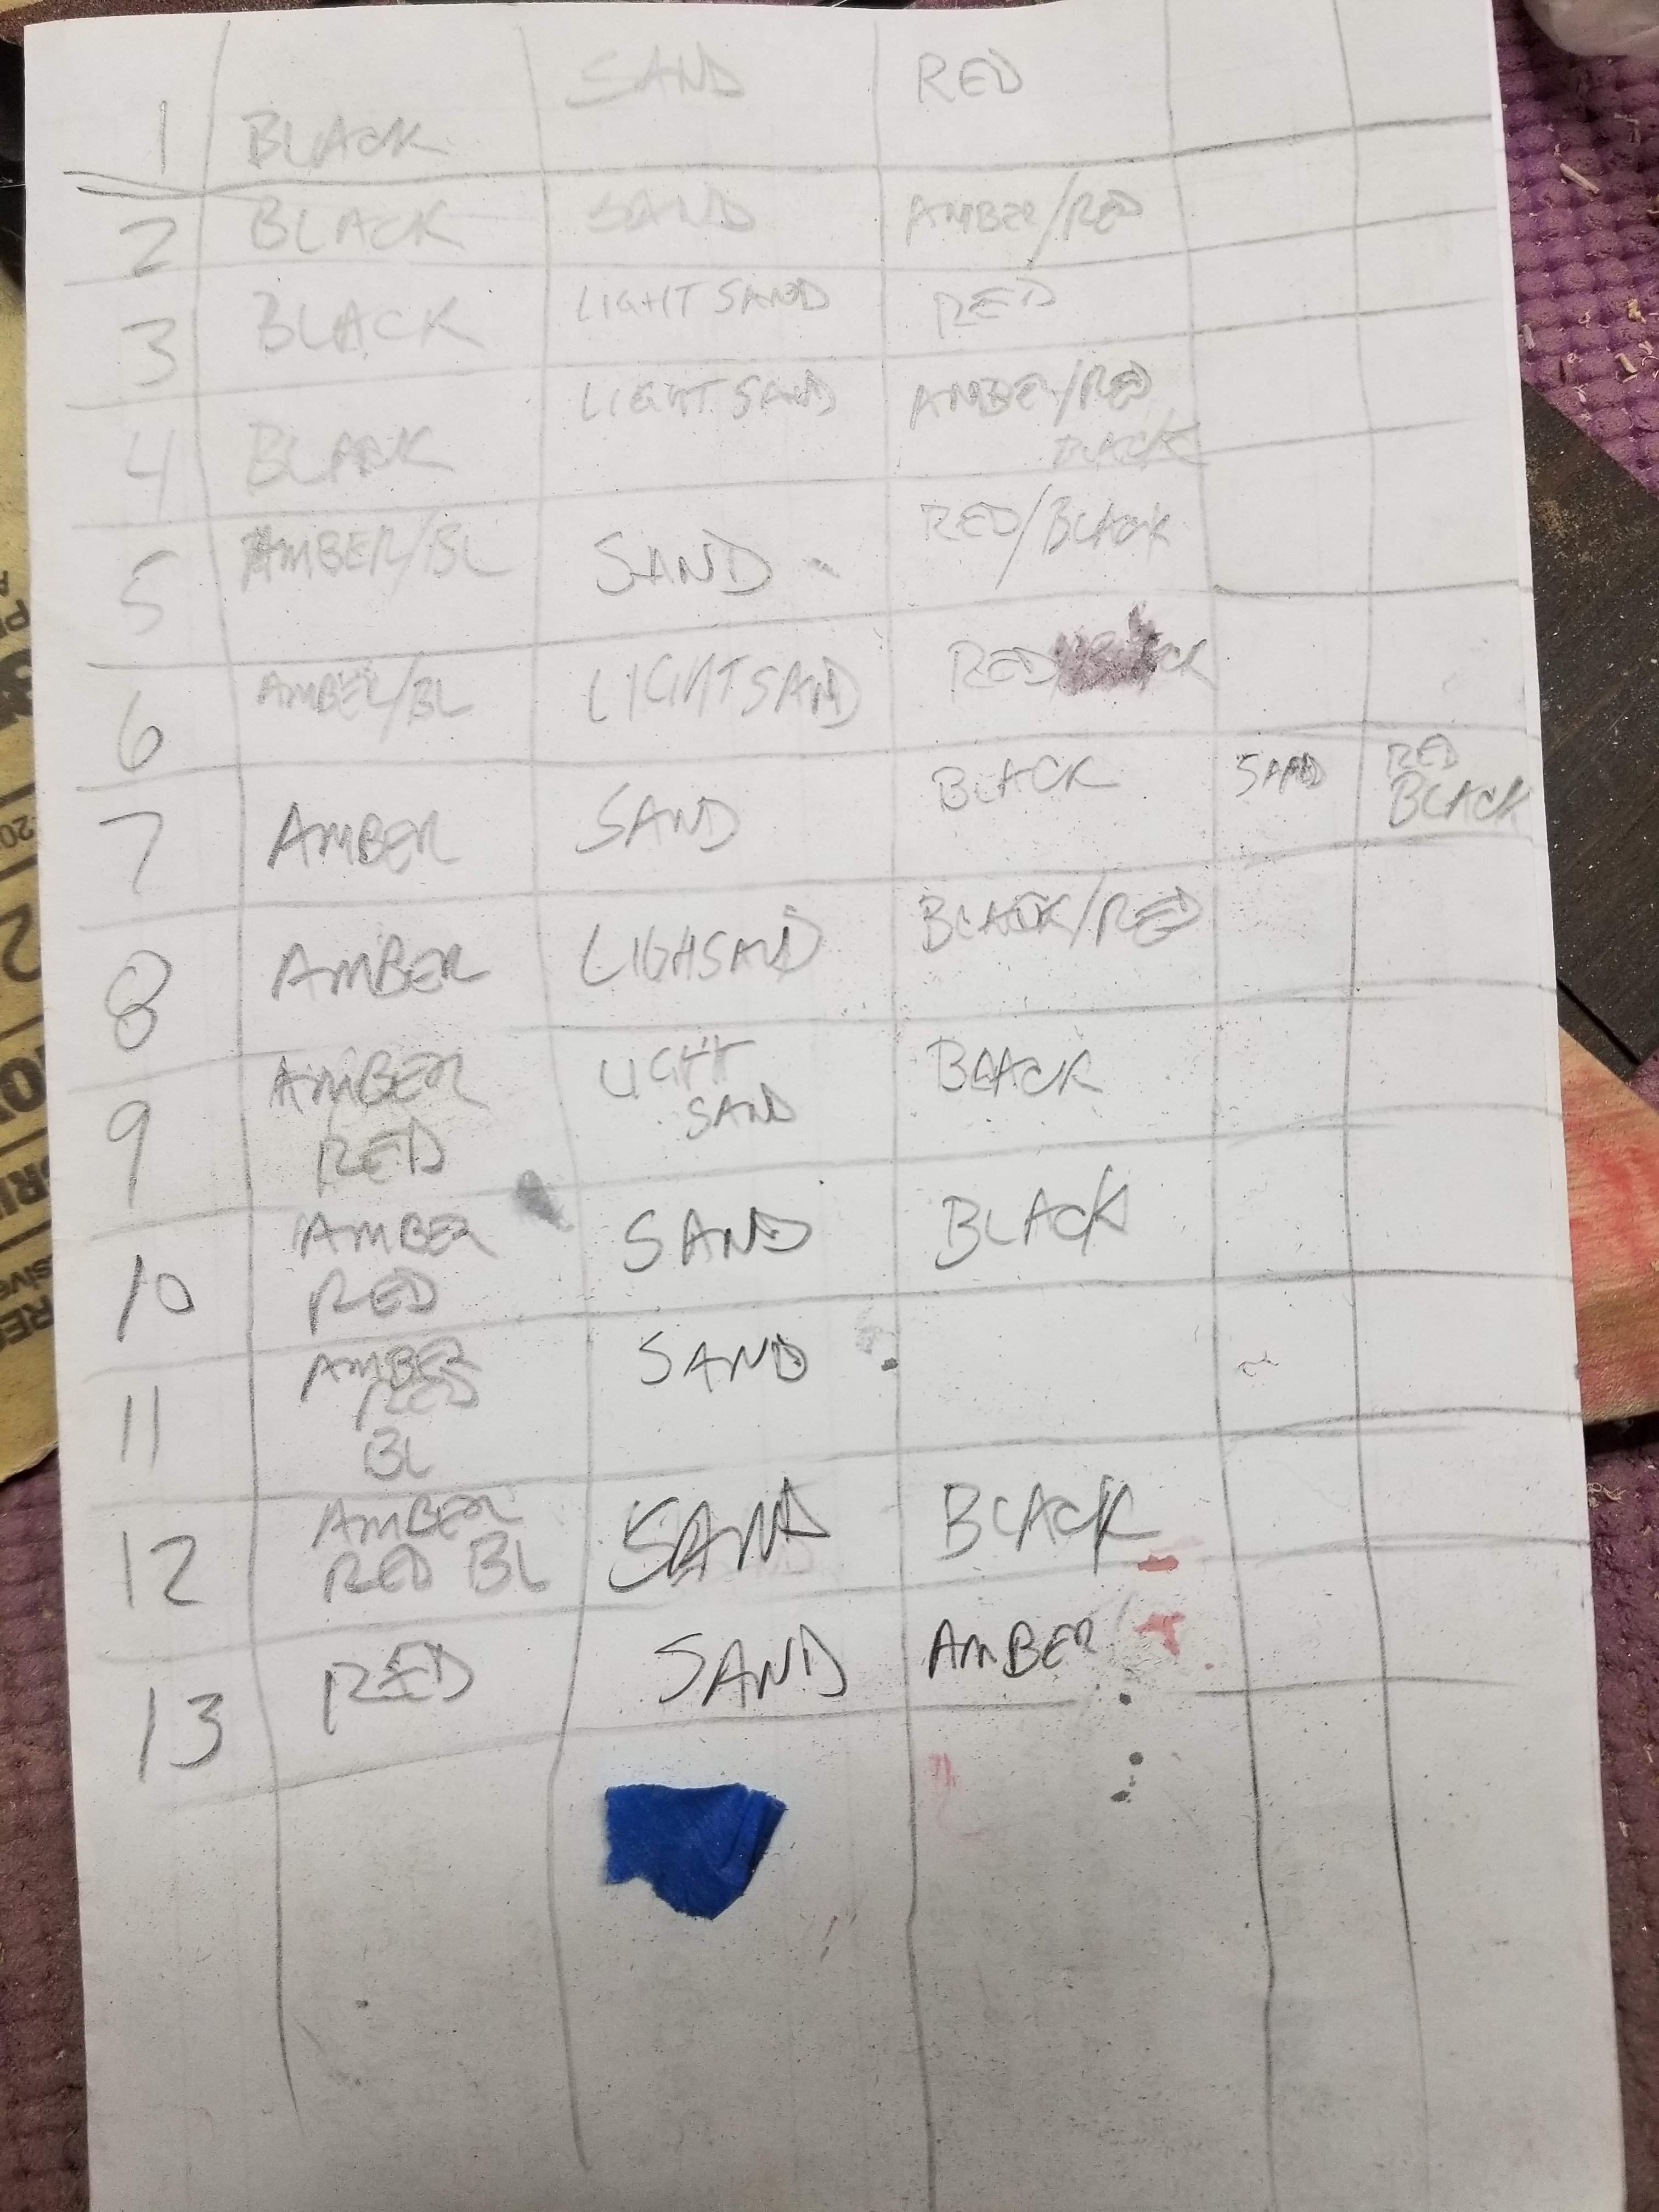 1 BLACK SAND RED
2 BLACK SAND AMBER/RED
3 BLACK LIGHT SAND RED
4 BLACK LIGHT SAND AMBER/RED
BLACK
5 AMBER/BL SAND RED/BLACK
6 AMBER/BL LIGHT SAND RED
7 AMBER SAND BLACK SAND RED
BLACK
8 AMBER LIGHSAND BLACK/RED
9 AMBER LIGHT BLACK
RED SAND
10 AMBER SAND BLACK
RED
11 AMBER SAND
RED
BL
12 AMBER SAND BLACK
RED BL
13 RED SAND AMBER